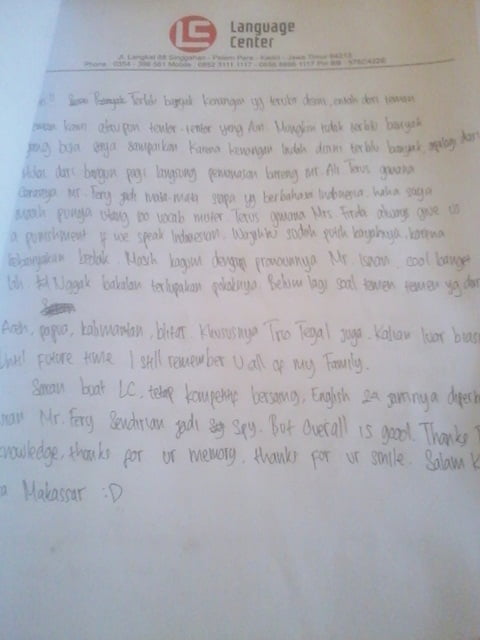 LC
Language
Center
Jl. Langkat 88 Singgahan - Pelem Pare - Kediri - Jawa Timur 64213
Phone : 0354 - 396 561 Mobile : 0852 3111 1117 -
Terlalu banyak kenangan yg terukir disini, entah dari teman
kawan ataupun tentor-tentor yang Asri. Mungkin tidak terlalu banyak
yang bisa saya sampaikan karena kenangan indah disini terlalu banyak, apalagi dari
dari bangun pagi langsung pemanasan bareng Mr. Ali Terus gimana
Mr. Fery jadi mata-mata siapa yg berbahasa Indonesia, haha saya
masih punya utang 100 vocab mister. Terus gimana Mrs. Frida always give us
a punishment if we speak Indonesian. Wajahku sudah putih kayaknya, karena
kebanyakan bedak. Masih kagum dengan pronounnya Mr. Isnan, cool banget
loh. Nggak bakalan terlupakan pokoknya. Belum lagi soal temen temen yg dari
Aceh, papua, kalimantan, blitar. Khususnya Trio Tegal juga. Kalian luar
Until Future time I still remember U all of my Family.
Saran buat LC, tetap kompetitif bersaing, English 24 jamnya
Mr. Fery Sendirian jadi Spy. But Overall is good. Thanks
knowledge, thanks for ur memory, thanks for ur smile. Salam
Makassar :D